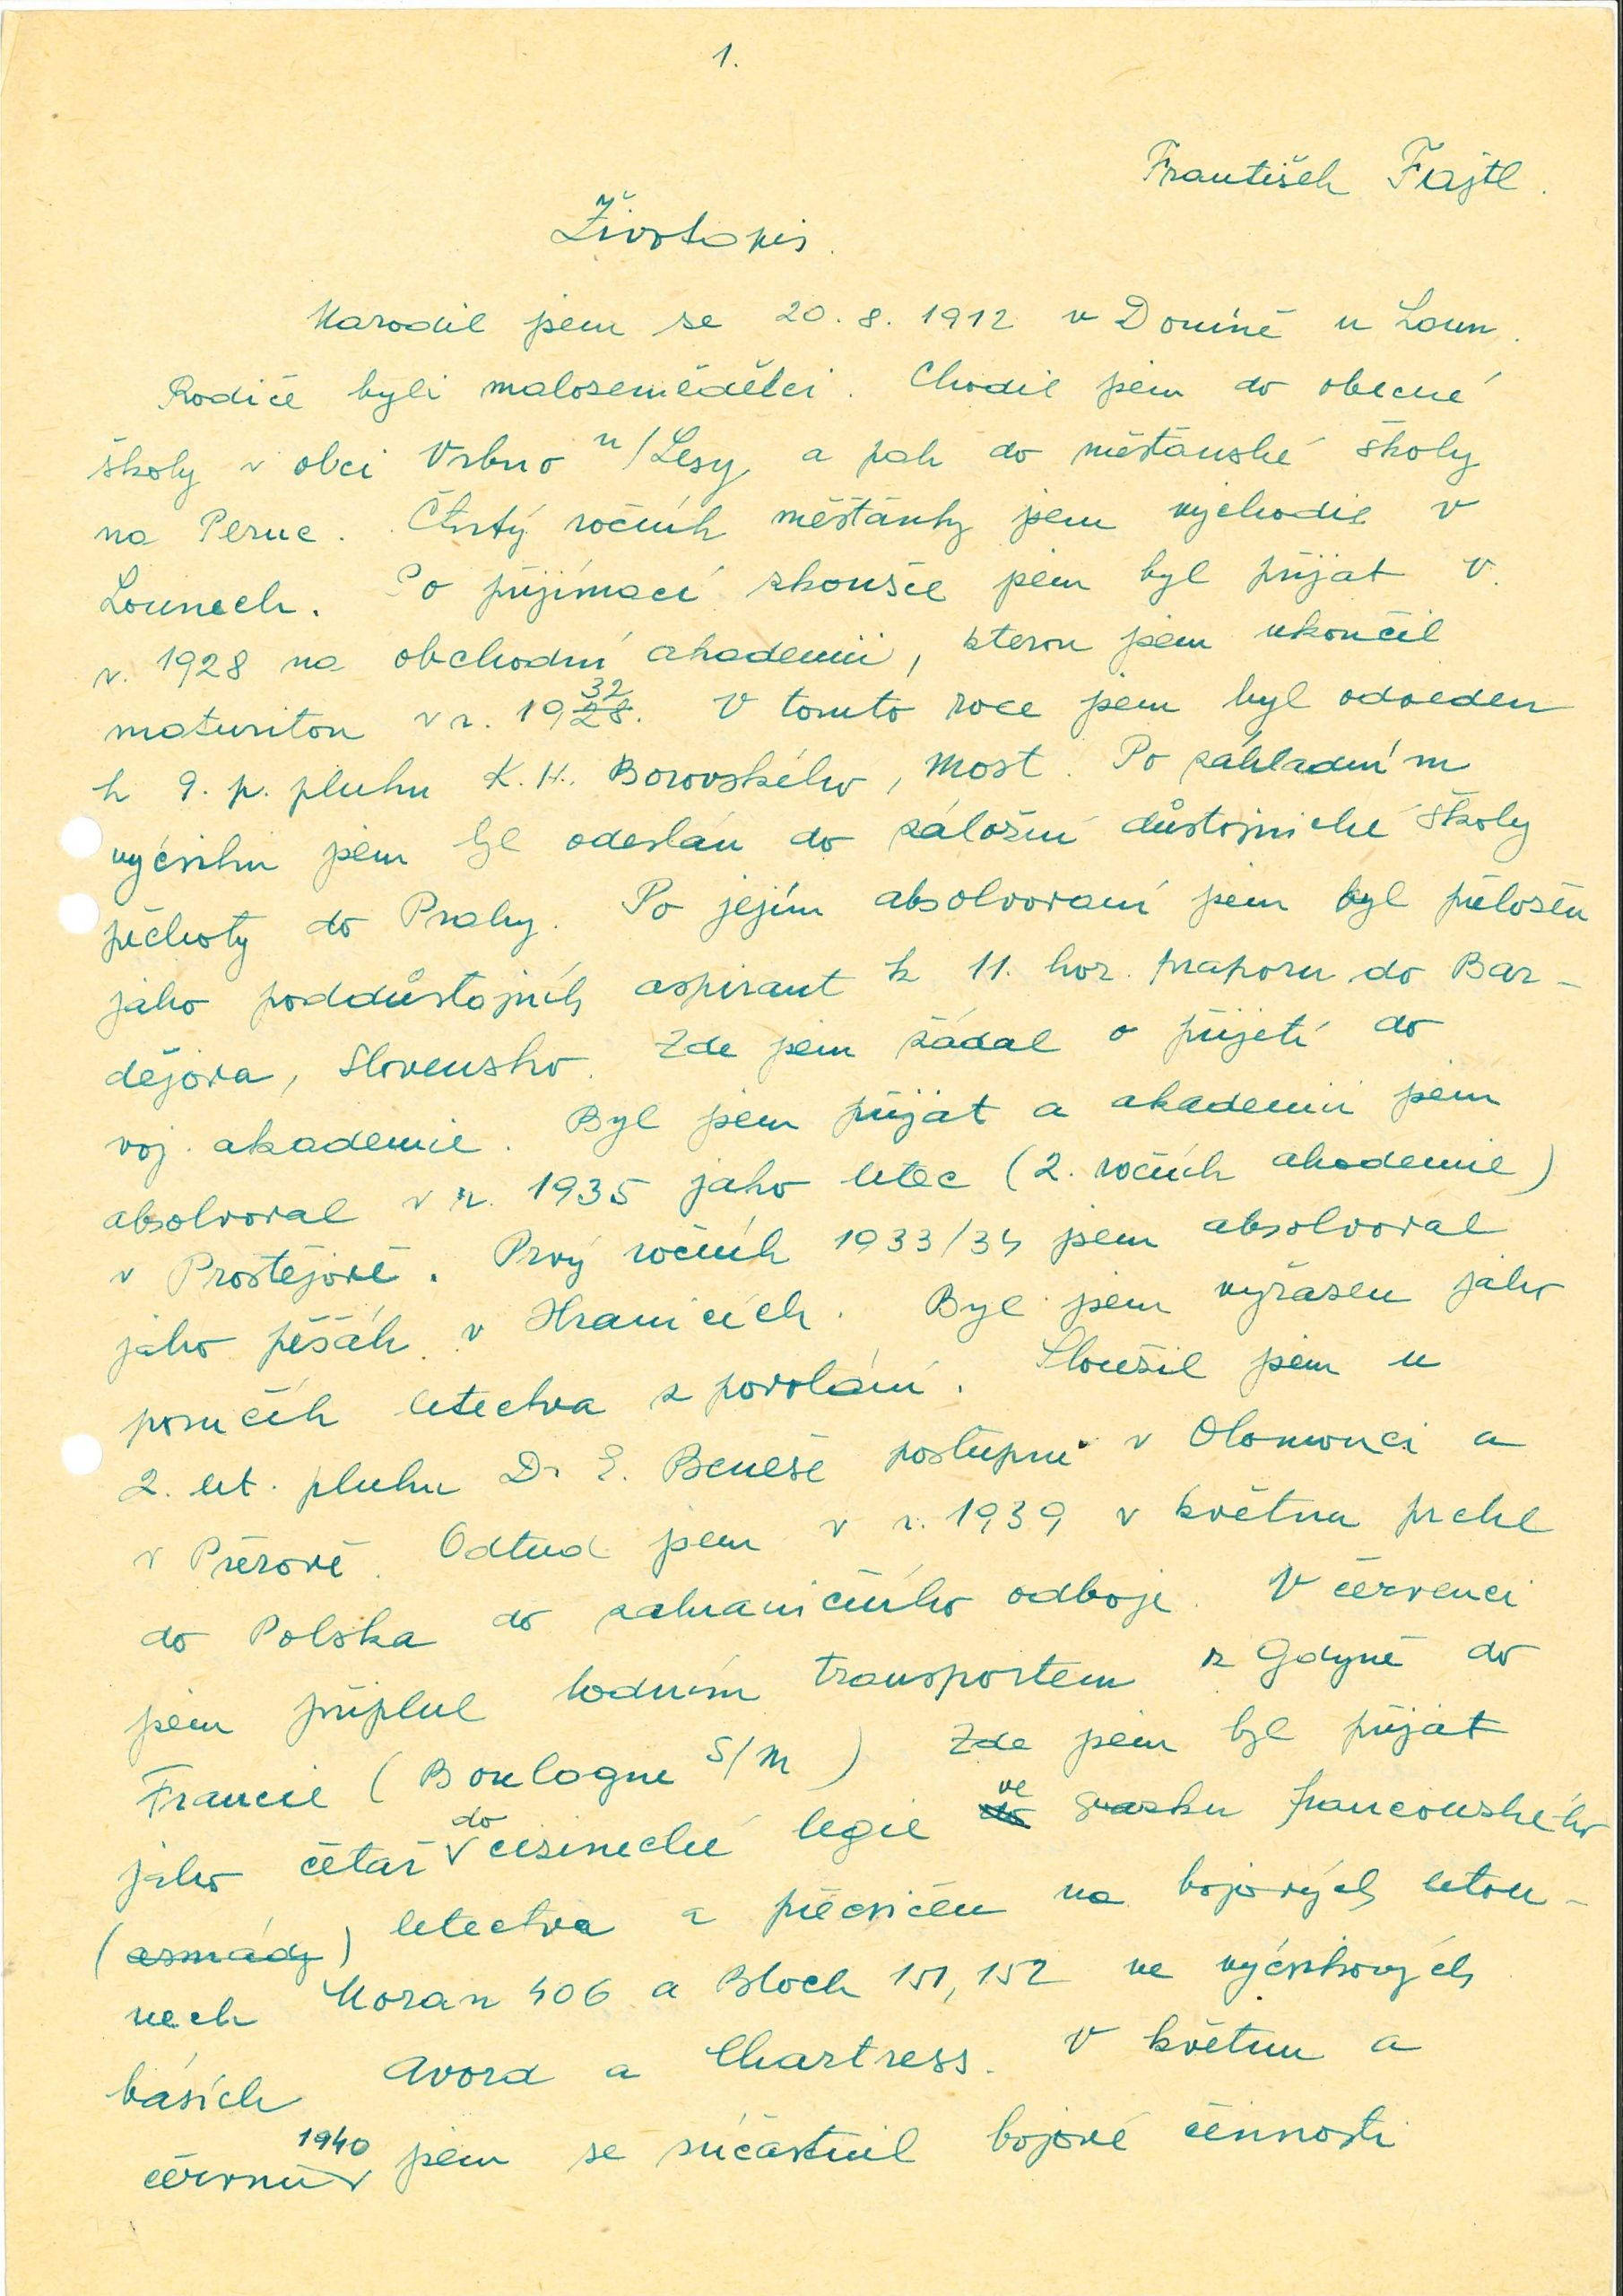 1.
František Fajtl.
Životopis.
Narodil jsem se 20. 8. 1912 v Doníně u Loun.
Rodiče byli malozemědělci. Chodil jsem do obecné
školy v obci Vrbno n/Lesy a pak do měšťanské školy
na Peruc. Čtvrtý ročník měšťanky jsem vychodil v
Lounech. Po přijímací zkoušce jsem byl přijat v
r. 1928 na obchodní akademii, kterou jsem ukončil
maturitou v r. 1932. V tomto roce jsem byl odveden
k 9. p. pluku K. H. Borovského, Most. Po základním
výcviku jsem byl odeslán do záložní důstojnické školy
pěchoty do Prahy. Po jejím absolvování jsem byl přeložen
jako poddůstojník aspirant k 11. hor. praporu do Bar-
dějova, Slovensko. Zde jsem žádal o přijetí do
voj. akademie. Byl jsem přijat a akademii jsem
absolvoval v r. 1935 jako letec (2. ročník akademie)
v Prostějově. Prvý ročník 1933/34 jsem absolvoval
jako pěšák v Hranicích. Byl jsem vyřazen jako
poručík letectva z povolání. Sloužil jsem u
2. let. pluku Dr E. Beneše postupně v Olomouci a
v Přerově. Odtud jsem v r. 1939 v květnu prchl
do Polska do zahraničního odboje. V červenci
jsem připlul lodním transportem z Gdyně do
Francie (Boulogne S/M) Zde jsem byl přijat
jako četař do cizinecké legie ve svazku francouzského
(armády) letectva a přecvičen na bojových letou-
nech Moran 406 a Bloch 151, 152 ve výcvikových
bázích Avord a Chartress. V květnu a
červnu 1940 jsem se súčastnil bojové činnosti